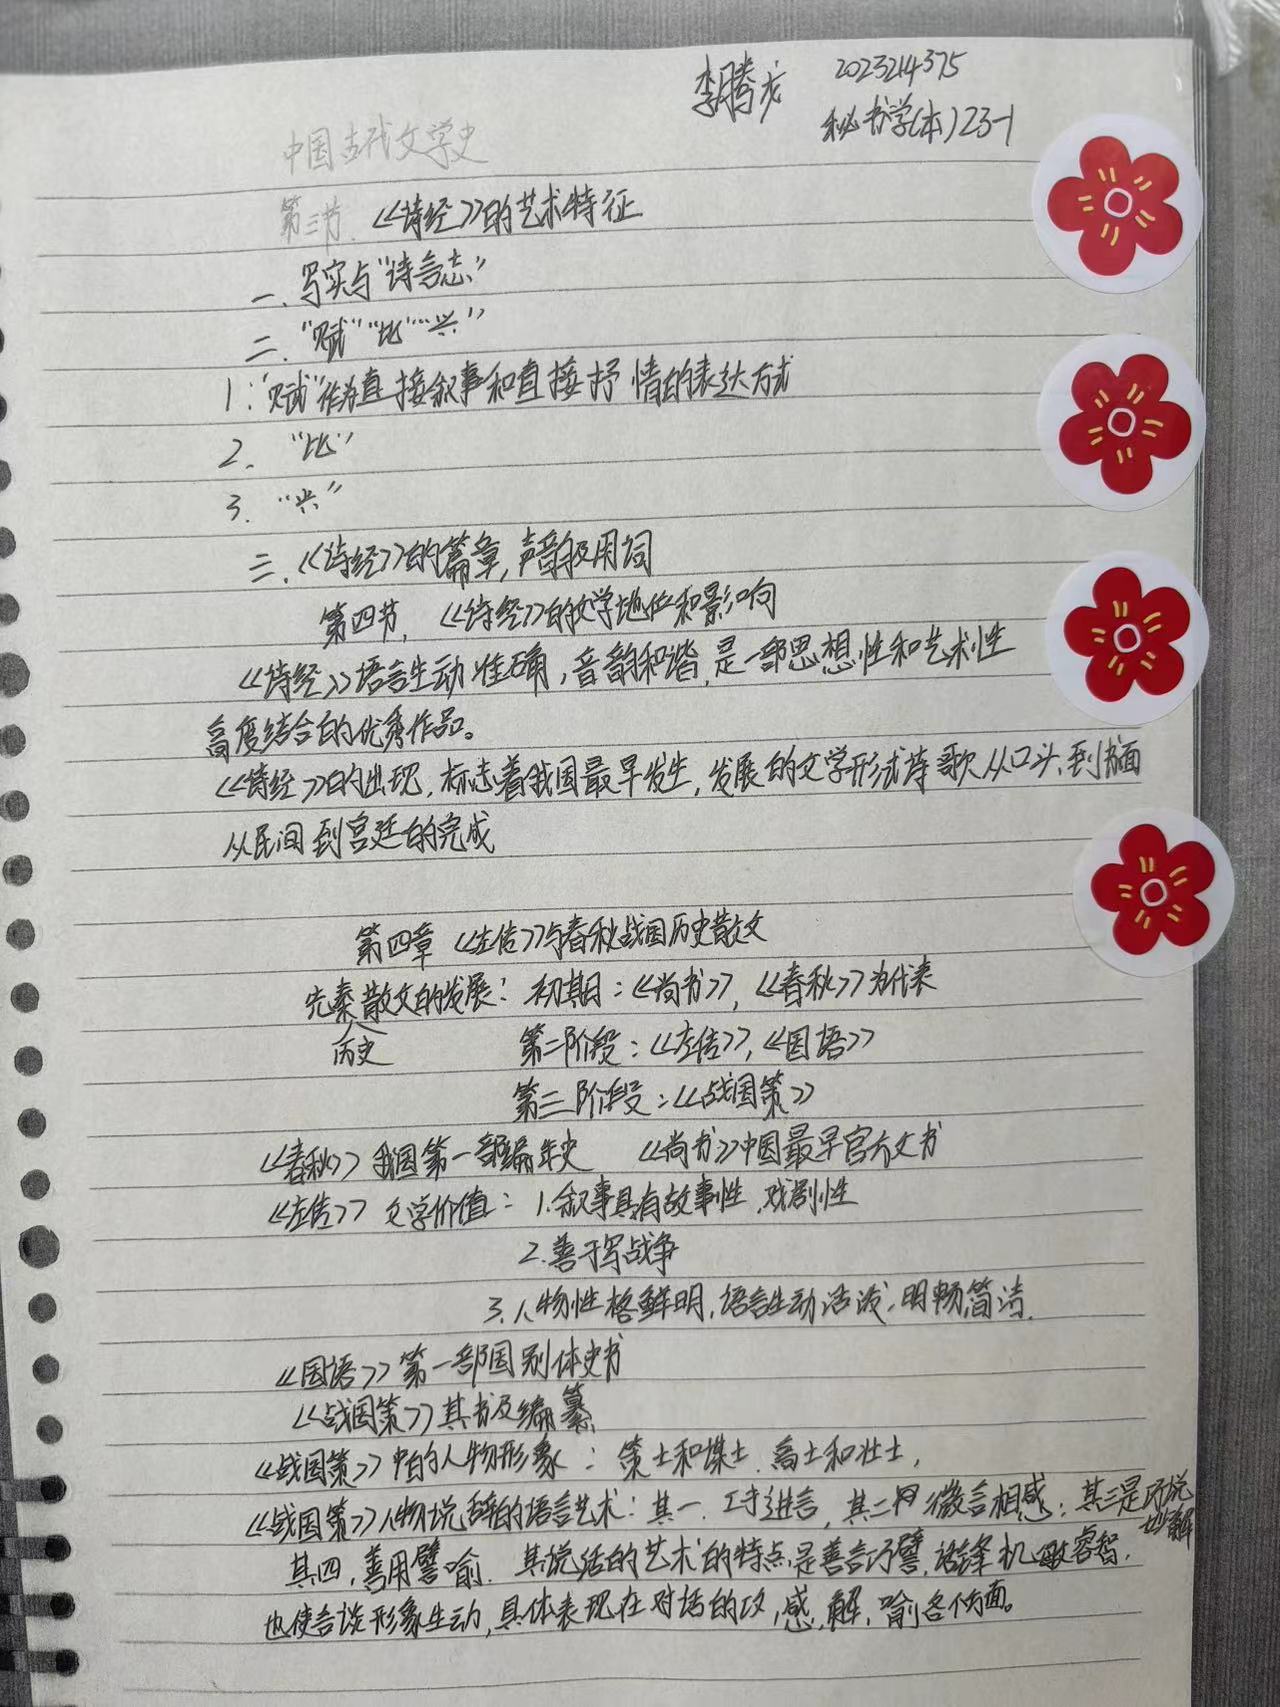 李腾龙 2023214375
秘书学(本)23-1
中国古代文学史
第三节.《诗经》的艺术特征
一、写实与“诗言志”
二、“赋”“比”“兴”
1.“赋”作为直接叙事和直接抒情的表达方式
2. “比”
3. “兴”
三、《诗经》的篇章,声韵及用词
第四节,《诗经》的文学地位和影响
《诗经》语言生动准确,音韵和谐,是一部思想性和艺术性
高度结合的优秀作品。
《诗经》的出现,标志着我国最早发生,发展的文学形式诗歌从口头到书面
从民间到宫廷的完成
第四章《左传》与春秋战国历史散文
先秦散文的发展:初期:《尚书》,《春秋》为代表
历史 第二阶段:《左传》,《国语》
第三阶段:《战国策》
《春秋》我国第一部编年史 《尚书》中国最早官方文书
《左传》文学价值:1.叙事具有故事性,戏剧性
2.善于写战争
3.人物性格鲜明,语言生动活泼,明畅简洁.
《国语》第一部国别体史书
《战国策》其书及编纂
《战国策》中的人物形象:策士和谋士.高士和壮士,
《战国策》人物说辞的语言艺术:其一.巧于进言,其二 微言相感;其三是巧说
妙解
其四,善用譬喻.其说话的艺术的特点是善言巧譬,话锋机敏睿智,
也使言谈形象生动,具体表现在对话的攻,感,解,喻各个方面。